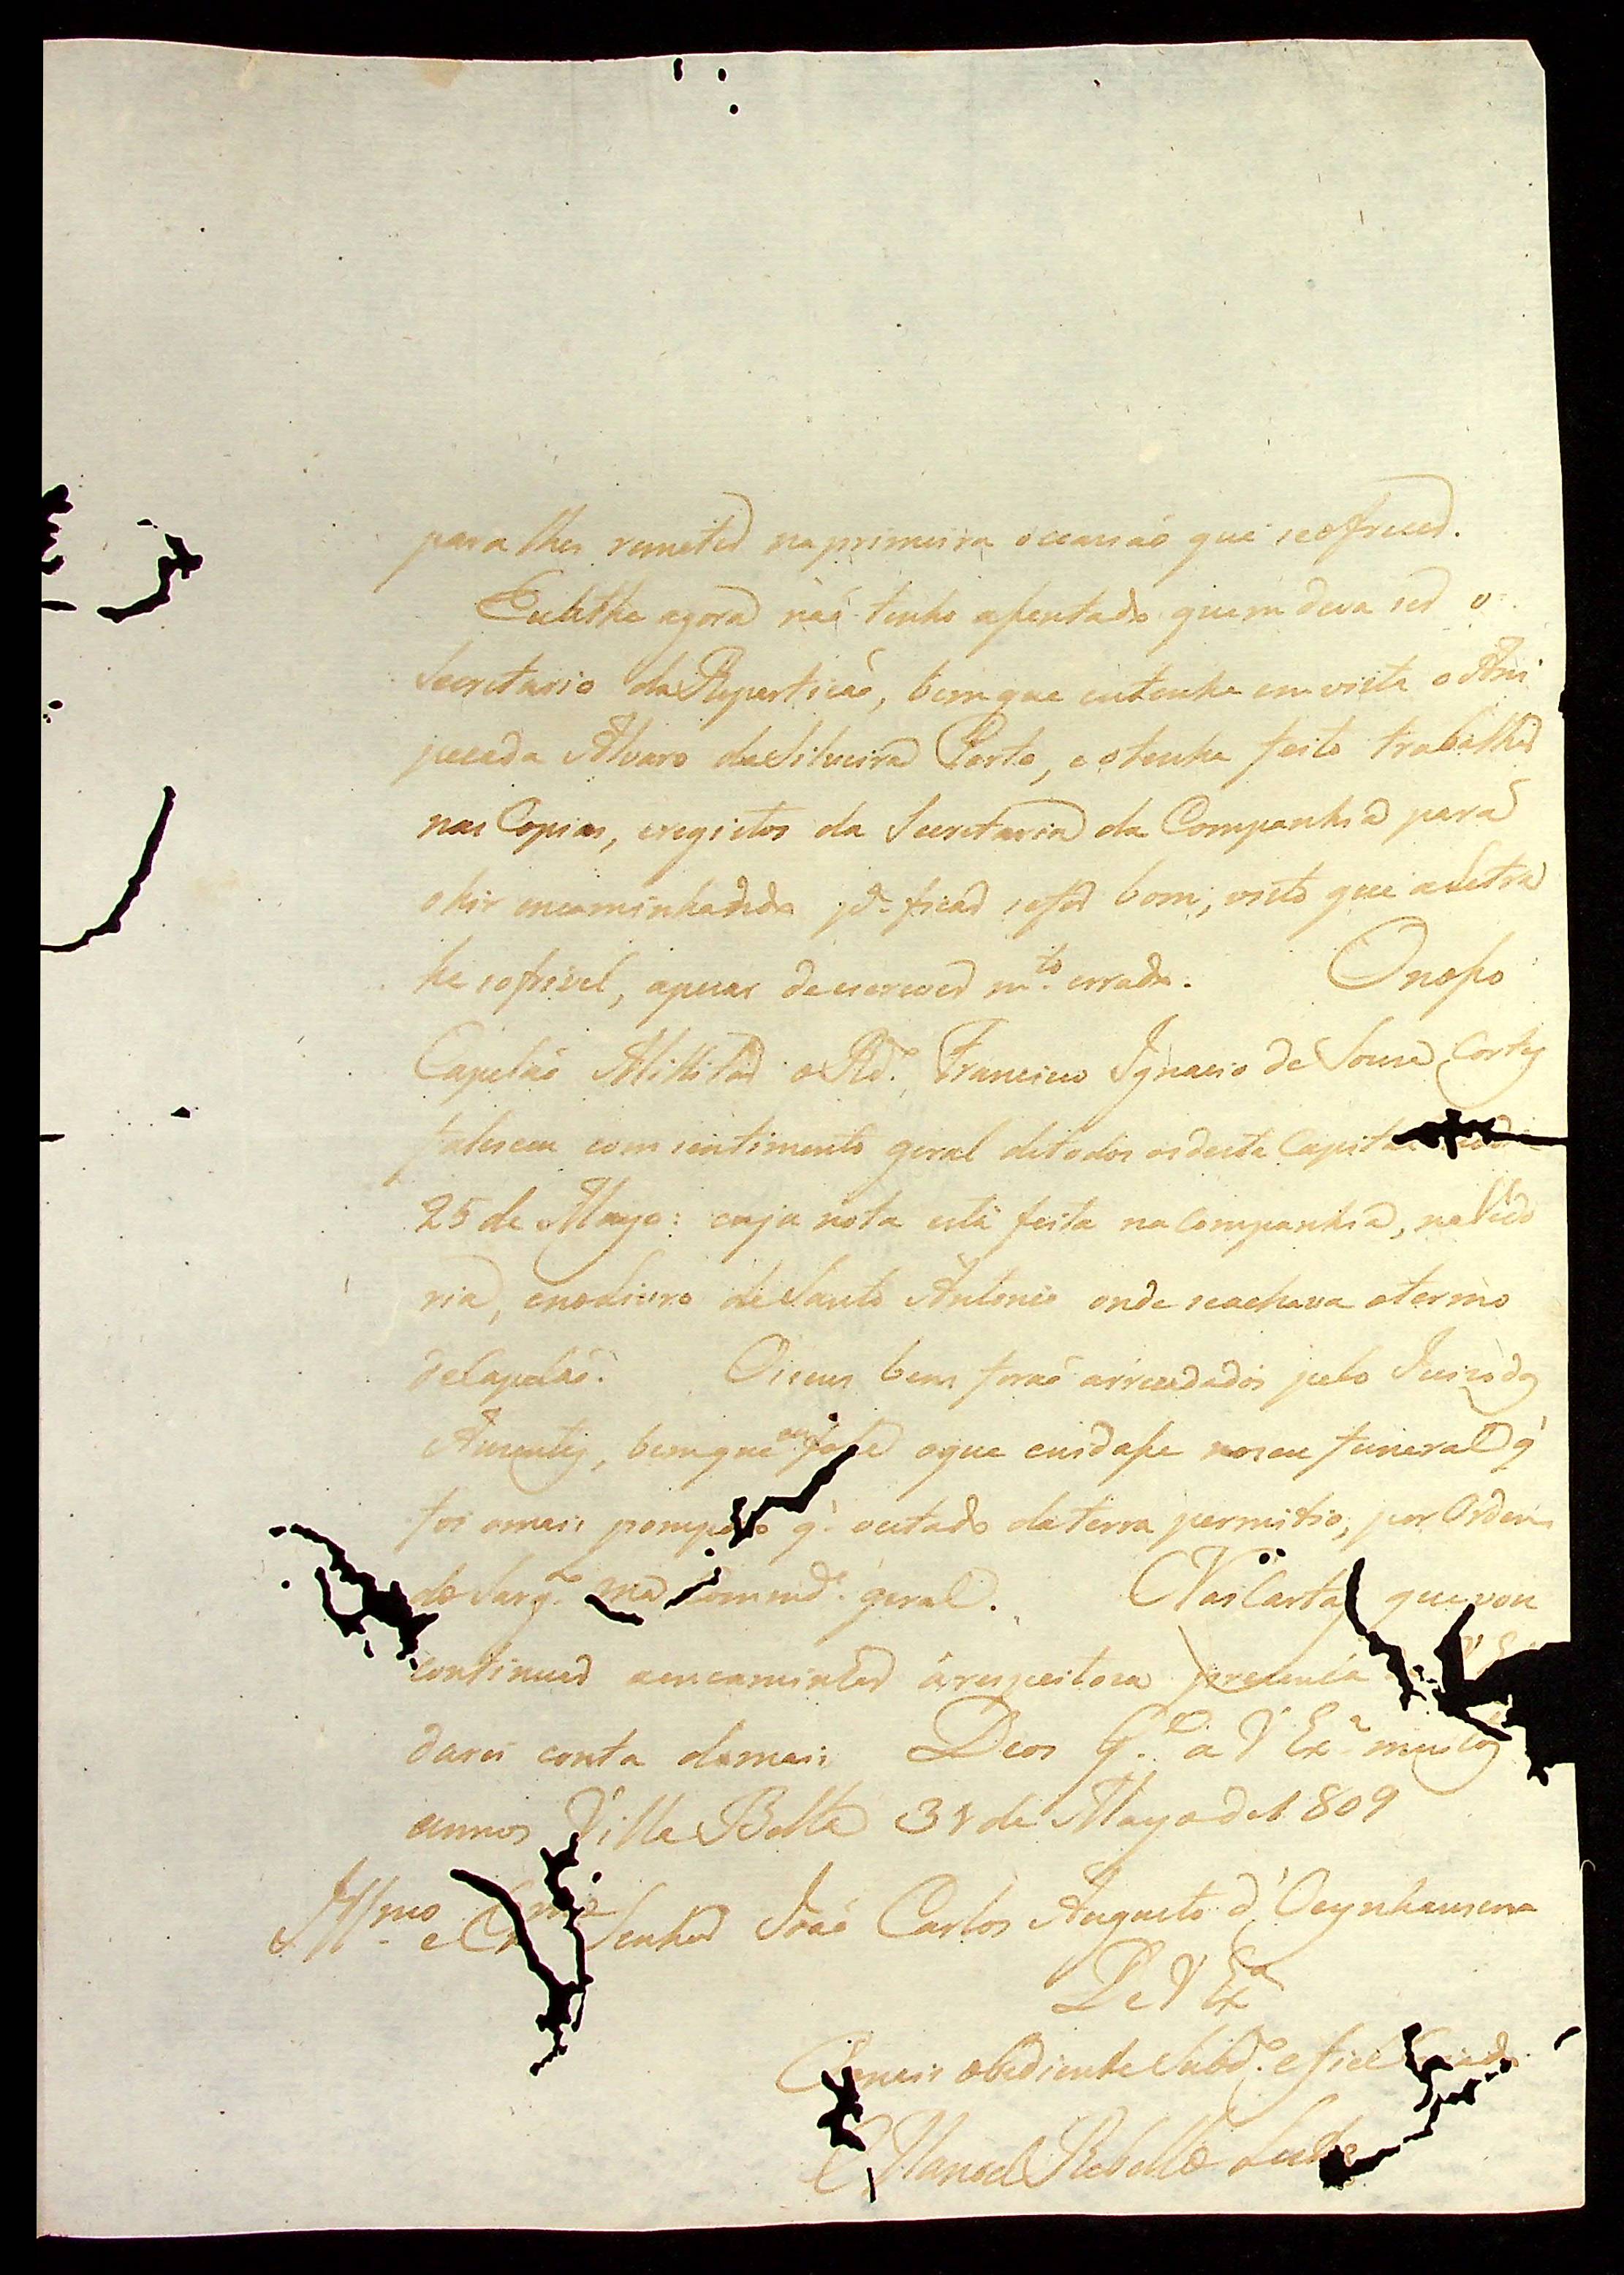 para lhes remeter na primeira occasiaõ que se offrecer.
Eu athe agora naõ tenho assentado quem deva ser o
Secretario da Repartiçaõ, bem que eu tenha em vista o Ans
peçada Alvaro da Silveira Porto, e o tenha feito trabalhar
nas Copias, e registos da Secretaria da Companhia para
o hir encaminhando p.ª ficar se for bom; visto que a Letra
he sofrivel, apezar de escrever m.to errado. O nosso
Capelaõ Millitar o R.do Francisco Ignacio de Souza Cortes
falesceu com sentimento geral de todos os desta Capital
25 de Mayo: cuja nota está feita na Companhia, na Vedo
ria, e no Livro de Santo Antonio onde se achava o termo
de Capelaõ. Os seus bens foraõ arrecadados pelo Juizo dos
Auzentes, bem que eu fosse o que cuidasse no seu funeral q'
foi o mais pomposo q' o estado da terra permitio, por Ordem
do Sarg.to mor Comm.de geral. Nas Cartas que vou
continuar a encaminhar á respeitosa prezença V Ex.ª
darei conta do mais Deos G.e a V Ex.ª muitos
annos Villa Bella 31 de Mayo de 1809
Ill.mo e Ex.mo Senhor Joaõ Carlos Augusto d'Oeynhausen
De V Ex.ª
O mais obediente Subd.º e fiel Criado
Manoel Rebello Leite